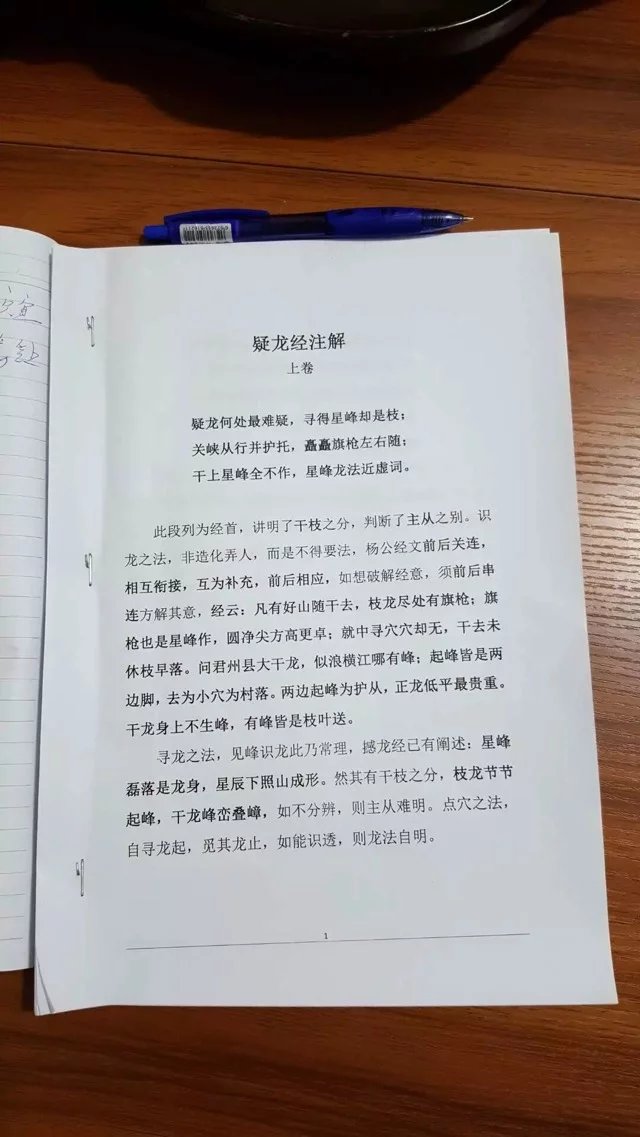 疑龙经注解
上卷
疑龙何处最难疑，寻得星峰却是枝；
关峡从行并护托，矗矗旗枪左右随；
干上星峰全不作，星峰龙法近虚词。
此段列为经首，讲明了干枝之分，判断了主从之别。识
龙之法，非造化弄人，而是不得要法，杨公经文前后关连，
相互衔接，互为补充，前后相应，如想破解经意，须前后串
连方解其意，经云：凡有好山随干去，枝龙尽处有旗枪；旗
枪也是星峰作，圆净尖方高更卓；就中寻穴穴却无，干去未
休枝早落。问君州县大干龙，似浪横江哪有峰；起峰皆是两
边脚，去为小穴为村落。两边起峰为护从，正龙低平最贵重。
干龙身上不生峰，有峰皆是枝叶送。
寻龙之法，见峰识龙此乃常理，撼龙经已有阐述：星峰
磊落是龙身，星辰下照山成形。然其有干枝之分，枝龙节节
起峰，干龙峰峦叠嶂，如不分辨，则主从难明。点穴之法，
自寻龙起，觅其龙止，如能识透，则龙法自明。
1